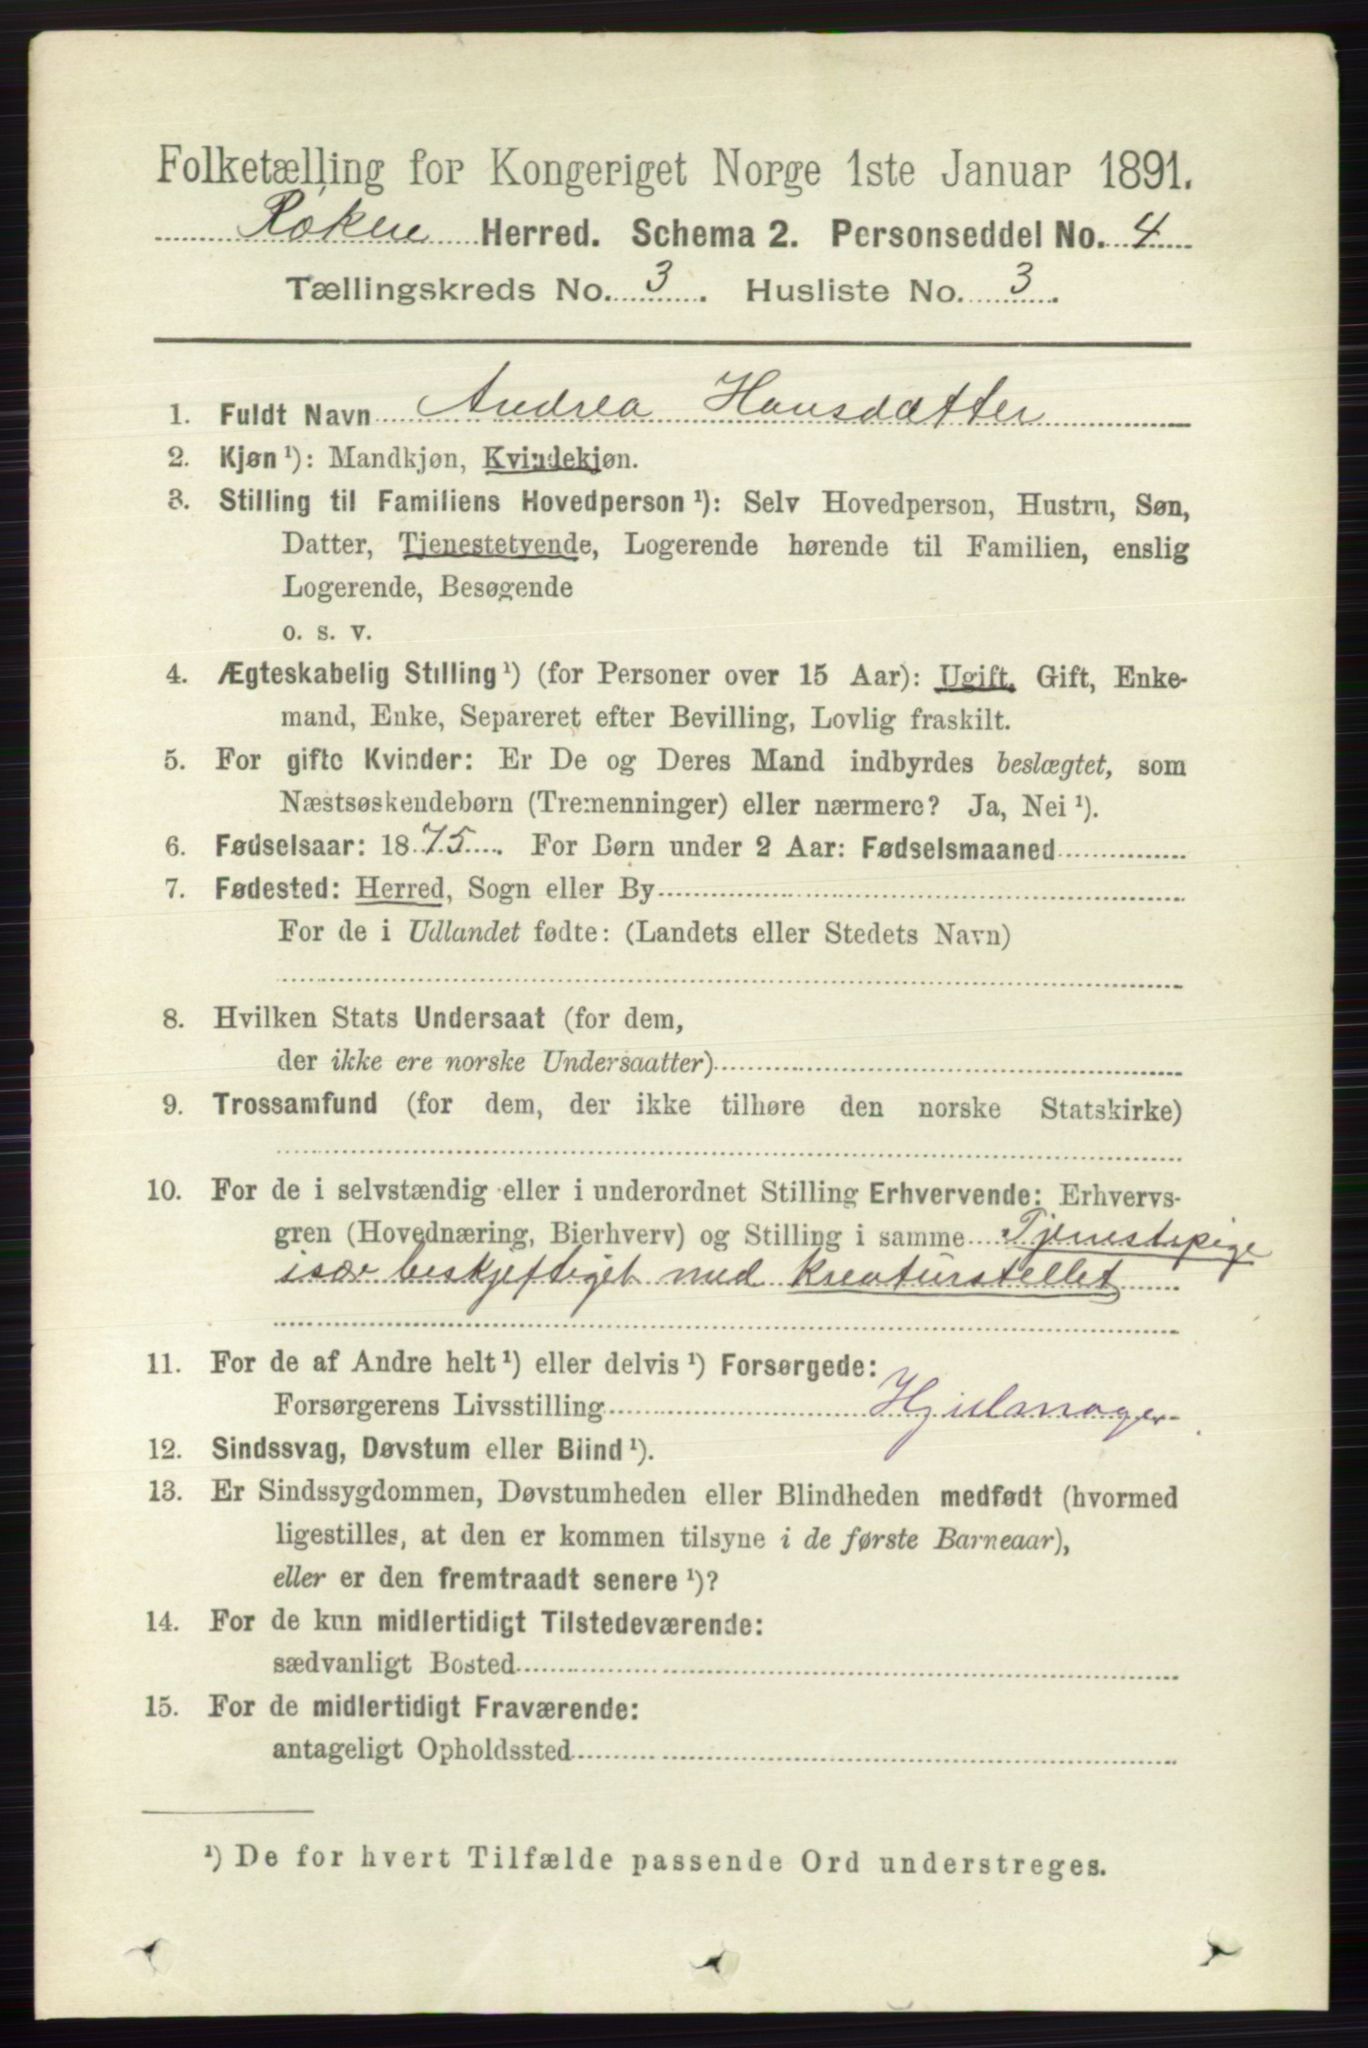 Folketælling for Kongeriget Norge 1ste Januar 1891.
Røken Herred. Schema 2. Personseddel No. 4
Tællingskreds No. 3. Husliste No. 3.
1. Fuldt Navn Andrea Hansdatter
2. Kjøn ¹): Mandkjøn, Kvindekjøn.
3. Stilling til Familiens Hovedperson ¹): Selv Hovedperson, Hustru, Søn,
Datter, Tjenestetyende, Logerende hørende til Familien, enslig
Logerende, Besøgende
o. s. v.
4. Ægteskabelig Stilling ¹) (for Personer over 15 Aar): Ugift, Gift, Enke-
mand, Enke, Separeret efter Bevilling, Lovlig fraskilt.
5. For gifte Kvinder: Er De og Deres Mand indbyrdes beslægtet, som
Næstsøskendebørn (Tremenninger) eller nærmere? Ja, Nei ¹).
6. Fødselsaar: 1875. For Børn under 2 Aar: Fødselsmaaned
7. Fødested: Herred, Sogn eller By
For de i Udlandet fødte: (Landets eller Stedets Navn)
8. Hvilken Stats Undersaat (for dem,
der ikke ere norske Undersaatter)
9. Trossamfund (for dem, der ikke tilhøre den norske Statskirke)
10. For de i selvstændig eller i underordnet Stilling Erhvervende: Erhvervs-
gren (Hovednæring, Bierhverv) og Stilling i samme Tjenestepige
især beskjeftiget med kreaturstellet
11. For de af Andre helt ¹) eller delvis ¹) Forsørgede:
Forsørgerens Livsstilling Hjulmager
12. Sindssvag, Døvstum eller Blind ¹).
13. Er Sindssygdommen, Døvstumheden eller Blindheden medfødt (hvormed
ligestilles, at den er kommen tilsyne i de første Barneaar),
eller er den fremtraadt senere ¹)?
14. For de kun midlertidigt Tilstedeværende:
sædvanligt Bosted
15. For de midlertidigt Fraværende:
antageligt Opholdssted
¹) De for hvert Tilfælde passende Ord understreges.